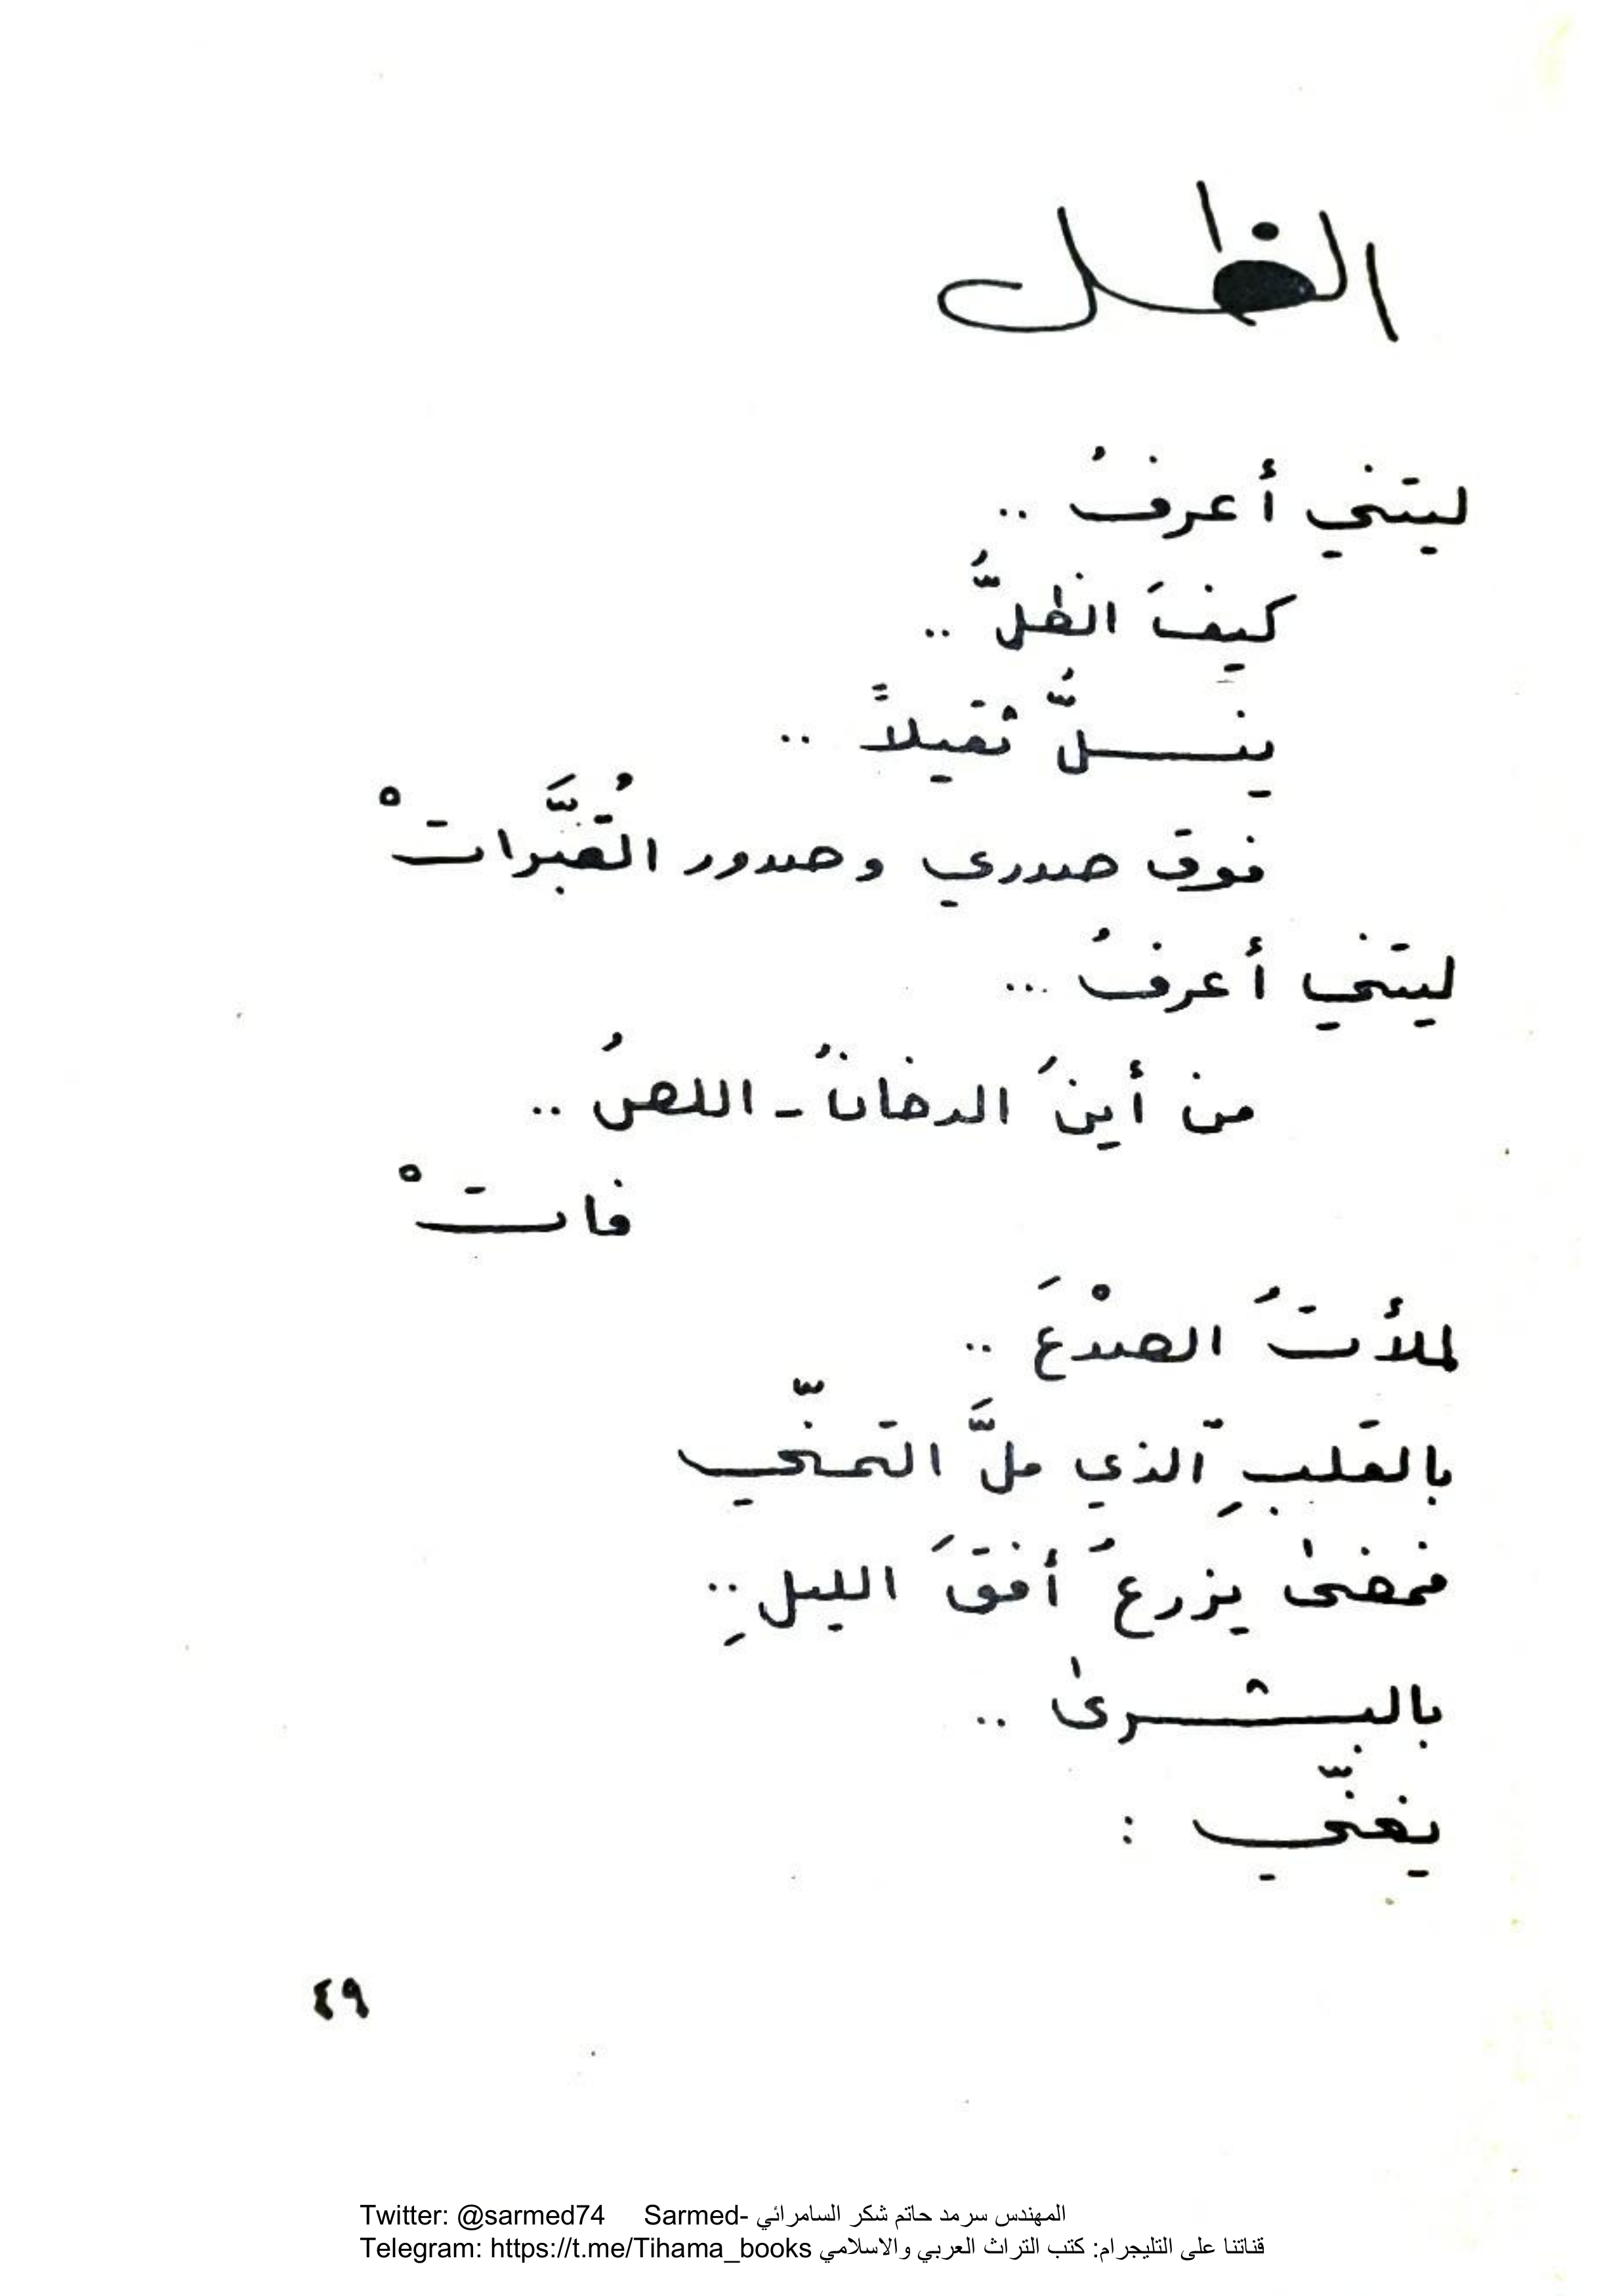 الظل
ليتني أعرفُ ..
كيفَ الظلُّ ..
ينسلُّ ثقيلاً ..
فوق صدري وصدور القُبَّراتْ
ليتني أعرفُ ...
من أينَ الدخانُ - اللصُ ..
فاتْ
لملأتُ الصدْعَ ..
بالقلبِ الذي ملَّ التمنّي
فمضىٰ يزرعُ أفقَ الليلِ ..
بالبشرىٰ ..
يغنّي :
٤٩
Twitter: @sarmed74 Sarmed- المهندس سرمد حاتم شكر السامرائي
Telegram: https://t.me/Tihama_books قناتنا على التليجرام: كتب التراث العربي والاسلامي